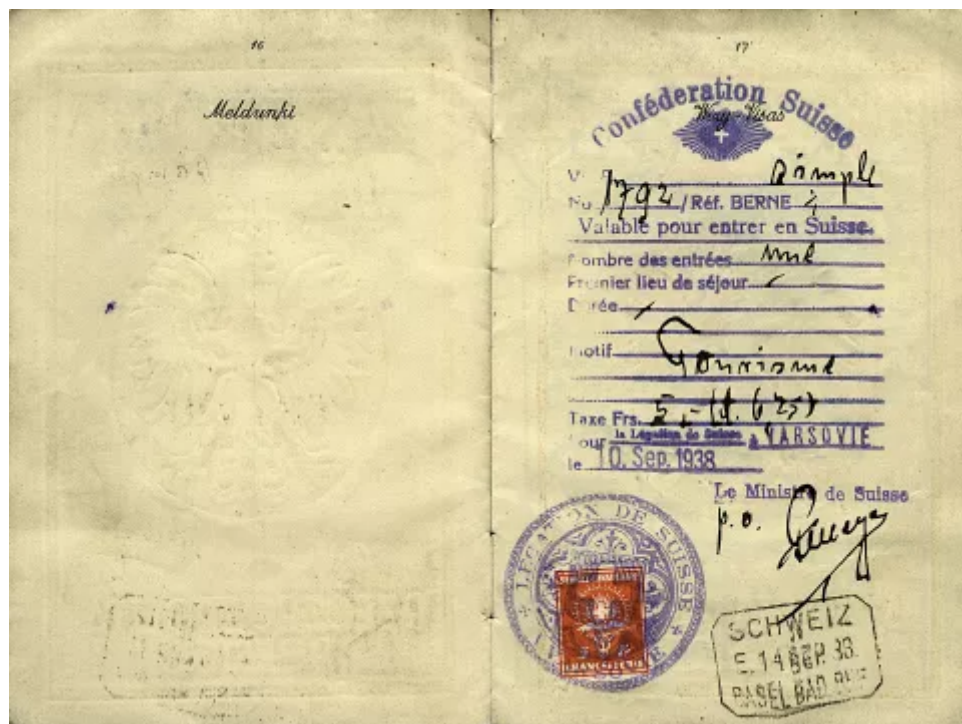 16
Meldunki
17
Confédération Suisse
Wizy - Visas
simple
No 1792 / Réf. BERNE
Valable pour entrer en Suisse.
Nombre des entrées une
Premier lieu de séjour
Durée
Motif Tourisme
Taxe Frs. 5.-
pour la Légation de Suisse à VARSOVIE
le 10. Sep. 1938
Le Ministre de Suisse
p. o.
LEGATION DE SUISSE
SCHWEIZ
E 14 SEP. 38
BASEL BAD